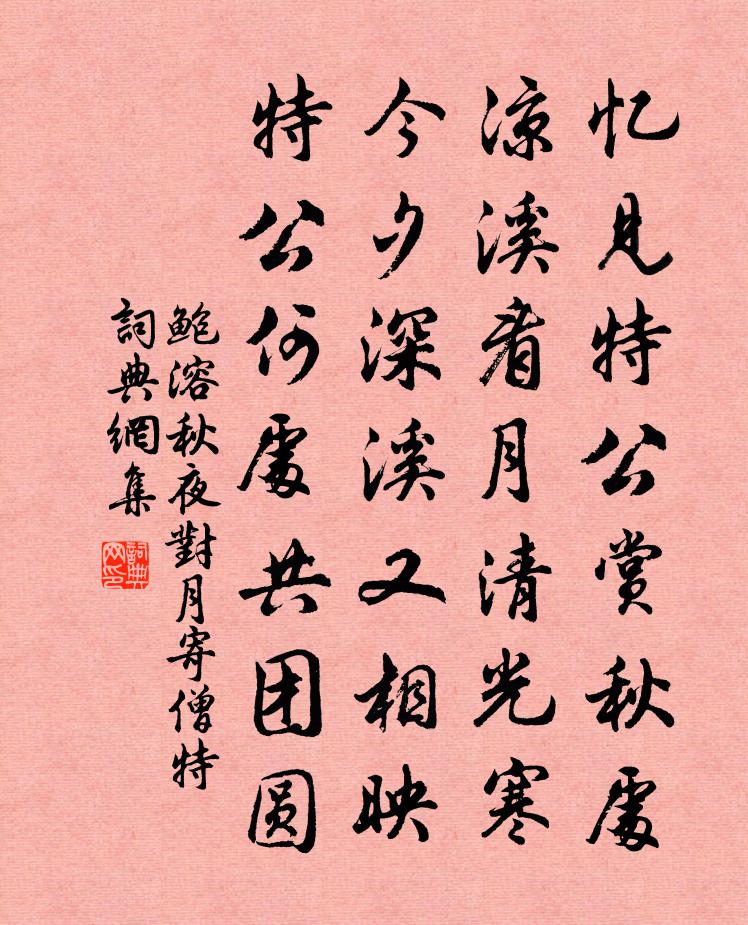 忆见特公赏秋處
凉溪看月清光寒
今夕深溪又相映
特公何處共团圆
鲍溶秋夜對月寄僧特
詞典網集
詞典網印